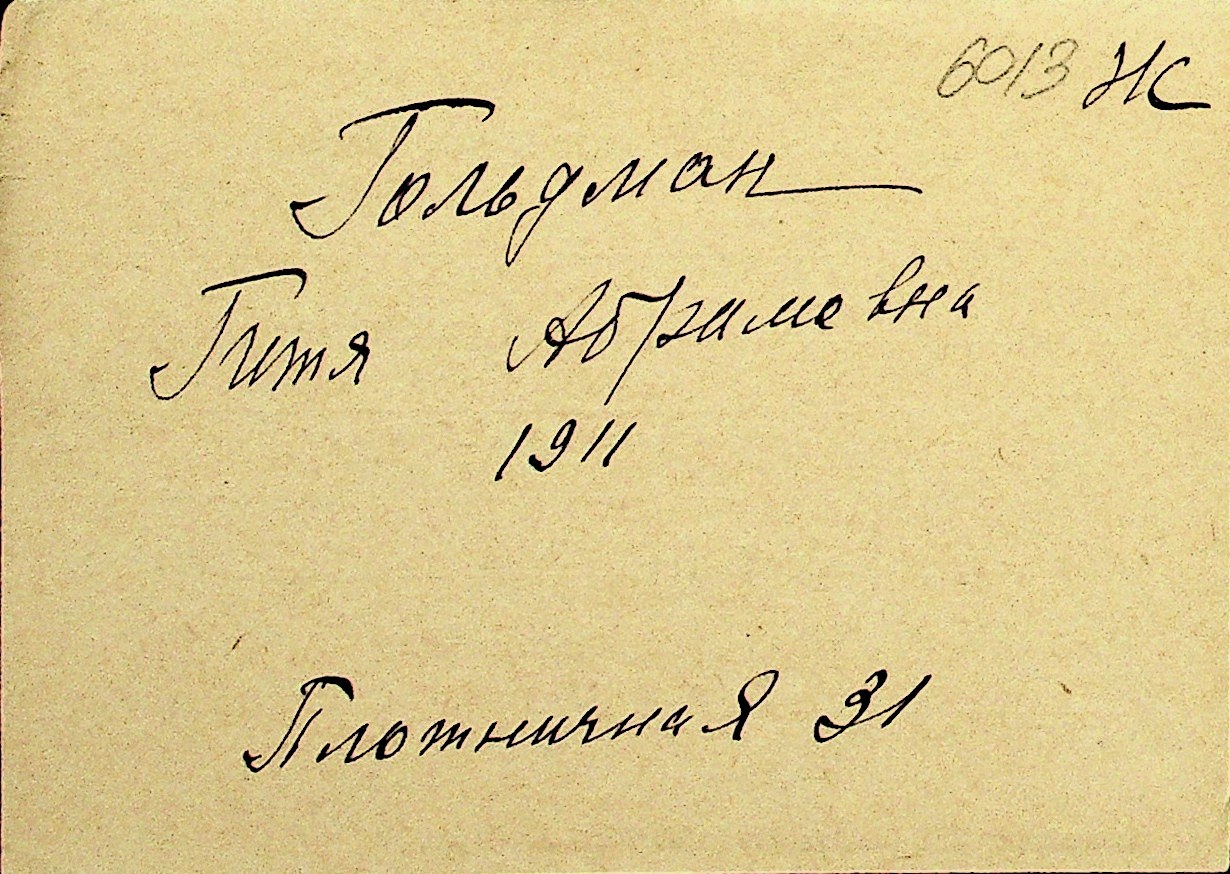 6013 НС
Гольдман
Гитя Абрамовна
1911
Плотничная 31